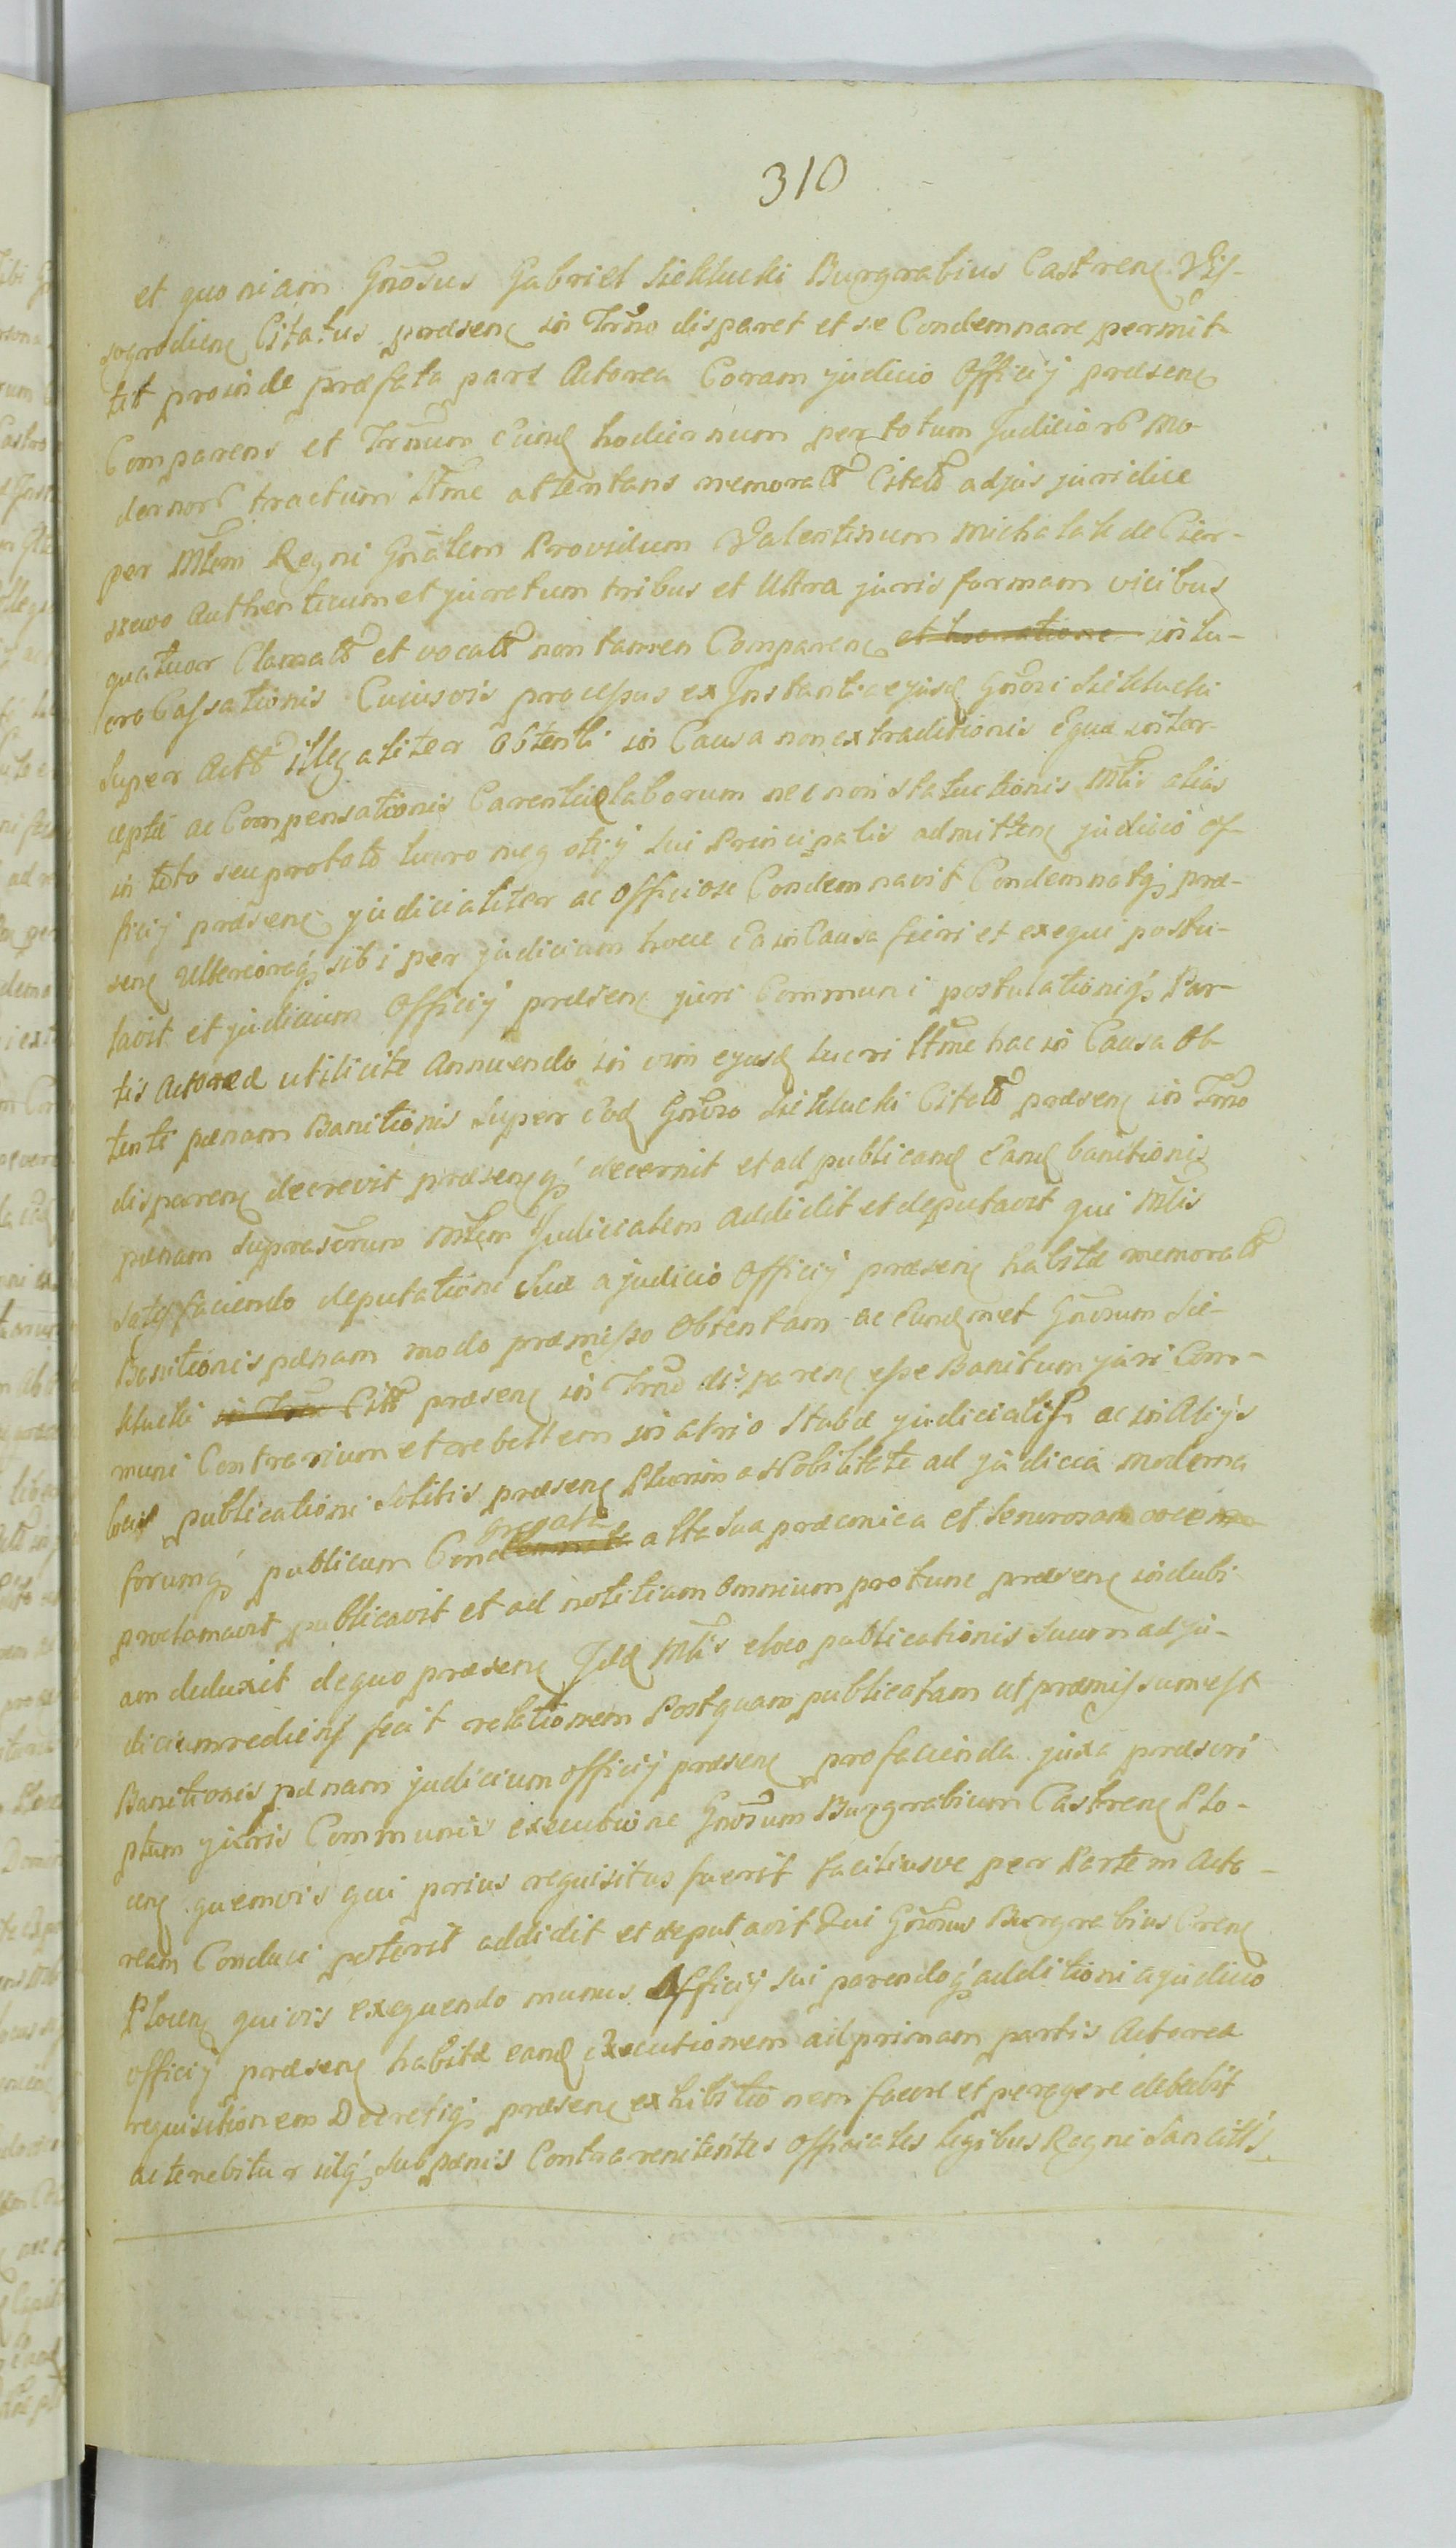 310
et quoniam Gnosus Gabriel Sieklucki Burgrabius Castren Vis-
sogrodien Citatus praesen in Trno disparet et se Condemnare permit-
tet proinde praefata pars Actorea Coram judicio Officij praesen
Comparens et Trnum Eund hodiernum per totum Judicior Mo-
dernor tractum Ltme attentans memorat Citat ad jus juridice
per Mlem Regni Gnalem Providum Valentinum Michalak de Cier-
szewo Authenticum et juratum tribus et Ultra juris formam vicibus
quatuor Clamat et vocat non tamen Comparen et in lu-
cro Cassationis Cujusvis processus ex Instantia ejusd Gnosi Sieklucki
super Act illegaliter Obtenti in Causa non extraditionis Equae inter-
ceptae ac Compensationis Carentiae laborum nec non statuitionis Mlis alias
in toto seu pro toto lucro negotij sui Principalis admitten judicio Of-
ficij praesen judicialiter ac officiose Condemnavit Condemnatq prae-
sen Ulterioraq sibi per judicium hocce Ea in Causa fieri et exequi postu-
lavit et judicium Officij praesen juri Communi postulationiq Par-
tis Actoreae utilicite Annuendo in vim ejusd lucri Ltme hac in Causa Ob-
tenti paenam Banitionis super Eod Gnoso Sieklucki Citat praesen in Trno
disparen decrevit praesenq decernit et ad publicand Eand banitionis
paenam suprascrum Mlem Judicialem Addidit et deputavit qui Mlis
satisfaciendo deputationi suae a judicio Officij praesen habitae memorat
Banitionis paenam modo praemisso Obtentam ac Eundemet Gnosum Sie-
klucki in Trno Citt praesen in Trno disparen esse Banitum juri Com-
muni Contrarium et rebellem in atrio Stubae judicialis ac in Alijs
locis publicationi Solitis praesen Plurim a Nobilitate ad judicia moderna
gregata
forumq publicum Con alta sua praeconica et senorosam vocem
proclamavit publicavit et ad notitiam Omnium pro tunc praesen indubi
am deduxit de quo praesen Idd Mlis e loco publicationis suum ad ju-
dicium rediens fecit relationem Postquam publicatam ut praemissum est
Banitionis paenam judicium officij praesen pro facienda juxa praescri
ptum juris Communis executione Gnosum Burgrabium Castren Plo-
cen quemvis qui prius requisitus fuerit faciliusve per Partem Acto-
ream Conduci poterit addidit et deputavit Qui Gnosus Burgrabius Cren
Plocen quivis exequendo munus Officij sui parendoq additioni a judicio
officij praesen habitae eand Executionem ad primam partis Actoreae
requisitionem Decretiq praesen exhibitionem facere et peragere debebit
ac tenebitur idq sub paenis Contra renitentes Officiales legibus Regni Sancitis